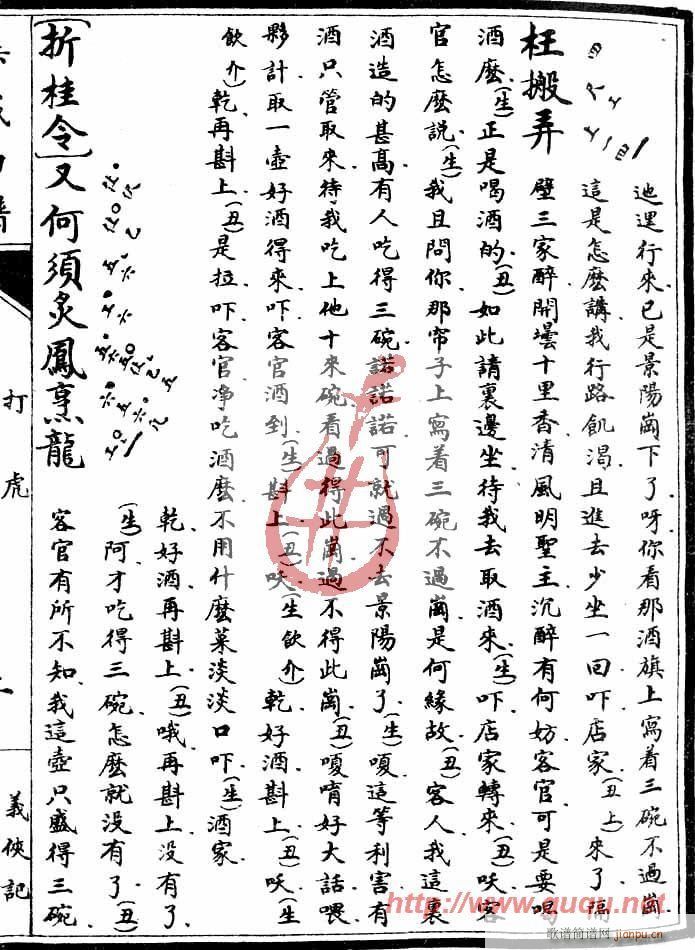 枉搬弄
迆𨓦行來已是景陽崗下了呀你看那酒旗上寫着三碗不過崗
這是怎麼講我行路飢渴且進去少坐一回吓店家(丑上)來了隔
壁三家醉開罎十里香清風明聖主沉醉有何妨客官可是要喝
酒麼(生)正是喝酒的(丑)如此請裏邊坐待我去取酒來(生)吓店家轉來(丑)呋客
官怎麼說(生)我且問你那帘子上寫着三碗不過崗是何緣故(丑)客人我這裏
酒造的甚高有人吃得三碗諾諾諾可就過不去景陽崗了(生)嗄這等利害有
酒只管取來待我吃上他十來碗看過得此崗過不得此崗(丑)嗄唷好大話喂
夥計取一壺好酒得來吓客官酒到(生)斟上(丑)呋(生飲介)乾好酒斟上(丑)呋(生
飲介)乾再斟上(丑)是拉吓客官淨吃酒麼不用什麼菜淡淡口吓(生)酒家
乾好酒再斟上(丑)哦再斟上没有了
(生)阿才吃得三碗怎麼就没有了(丑)
客官有所不知我這壺只盛得三碗
[折桂令]又何須炙鳳烹龍
打虎
義俠記
http://www.guqu.net
歌谱简谱网
jianpu.cn